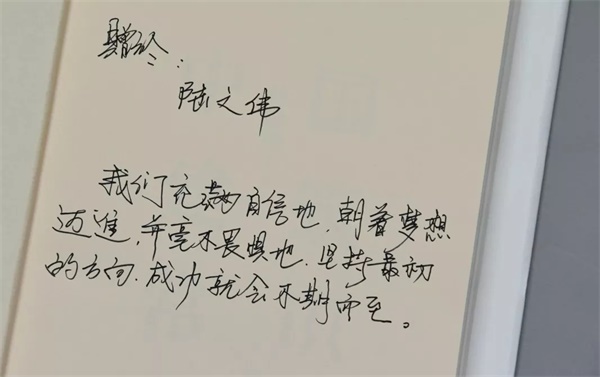 赠于：
陆文伟
我们充满自信地，朝着梦想
迈進，并毫不畏惧地，坚持最初
的方向，成功就会不期而至。